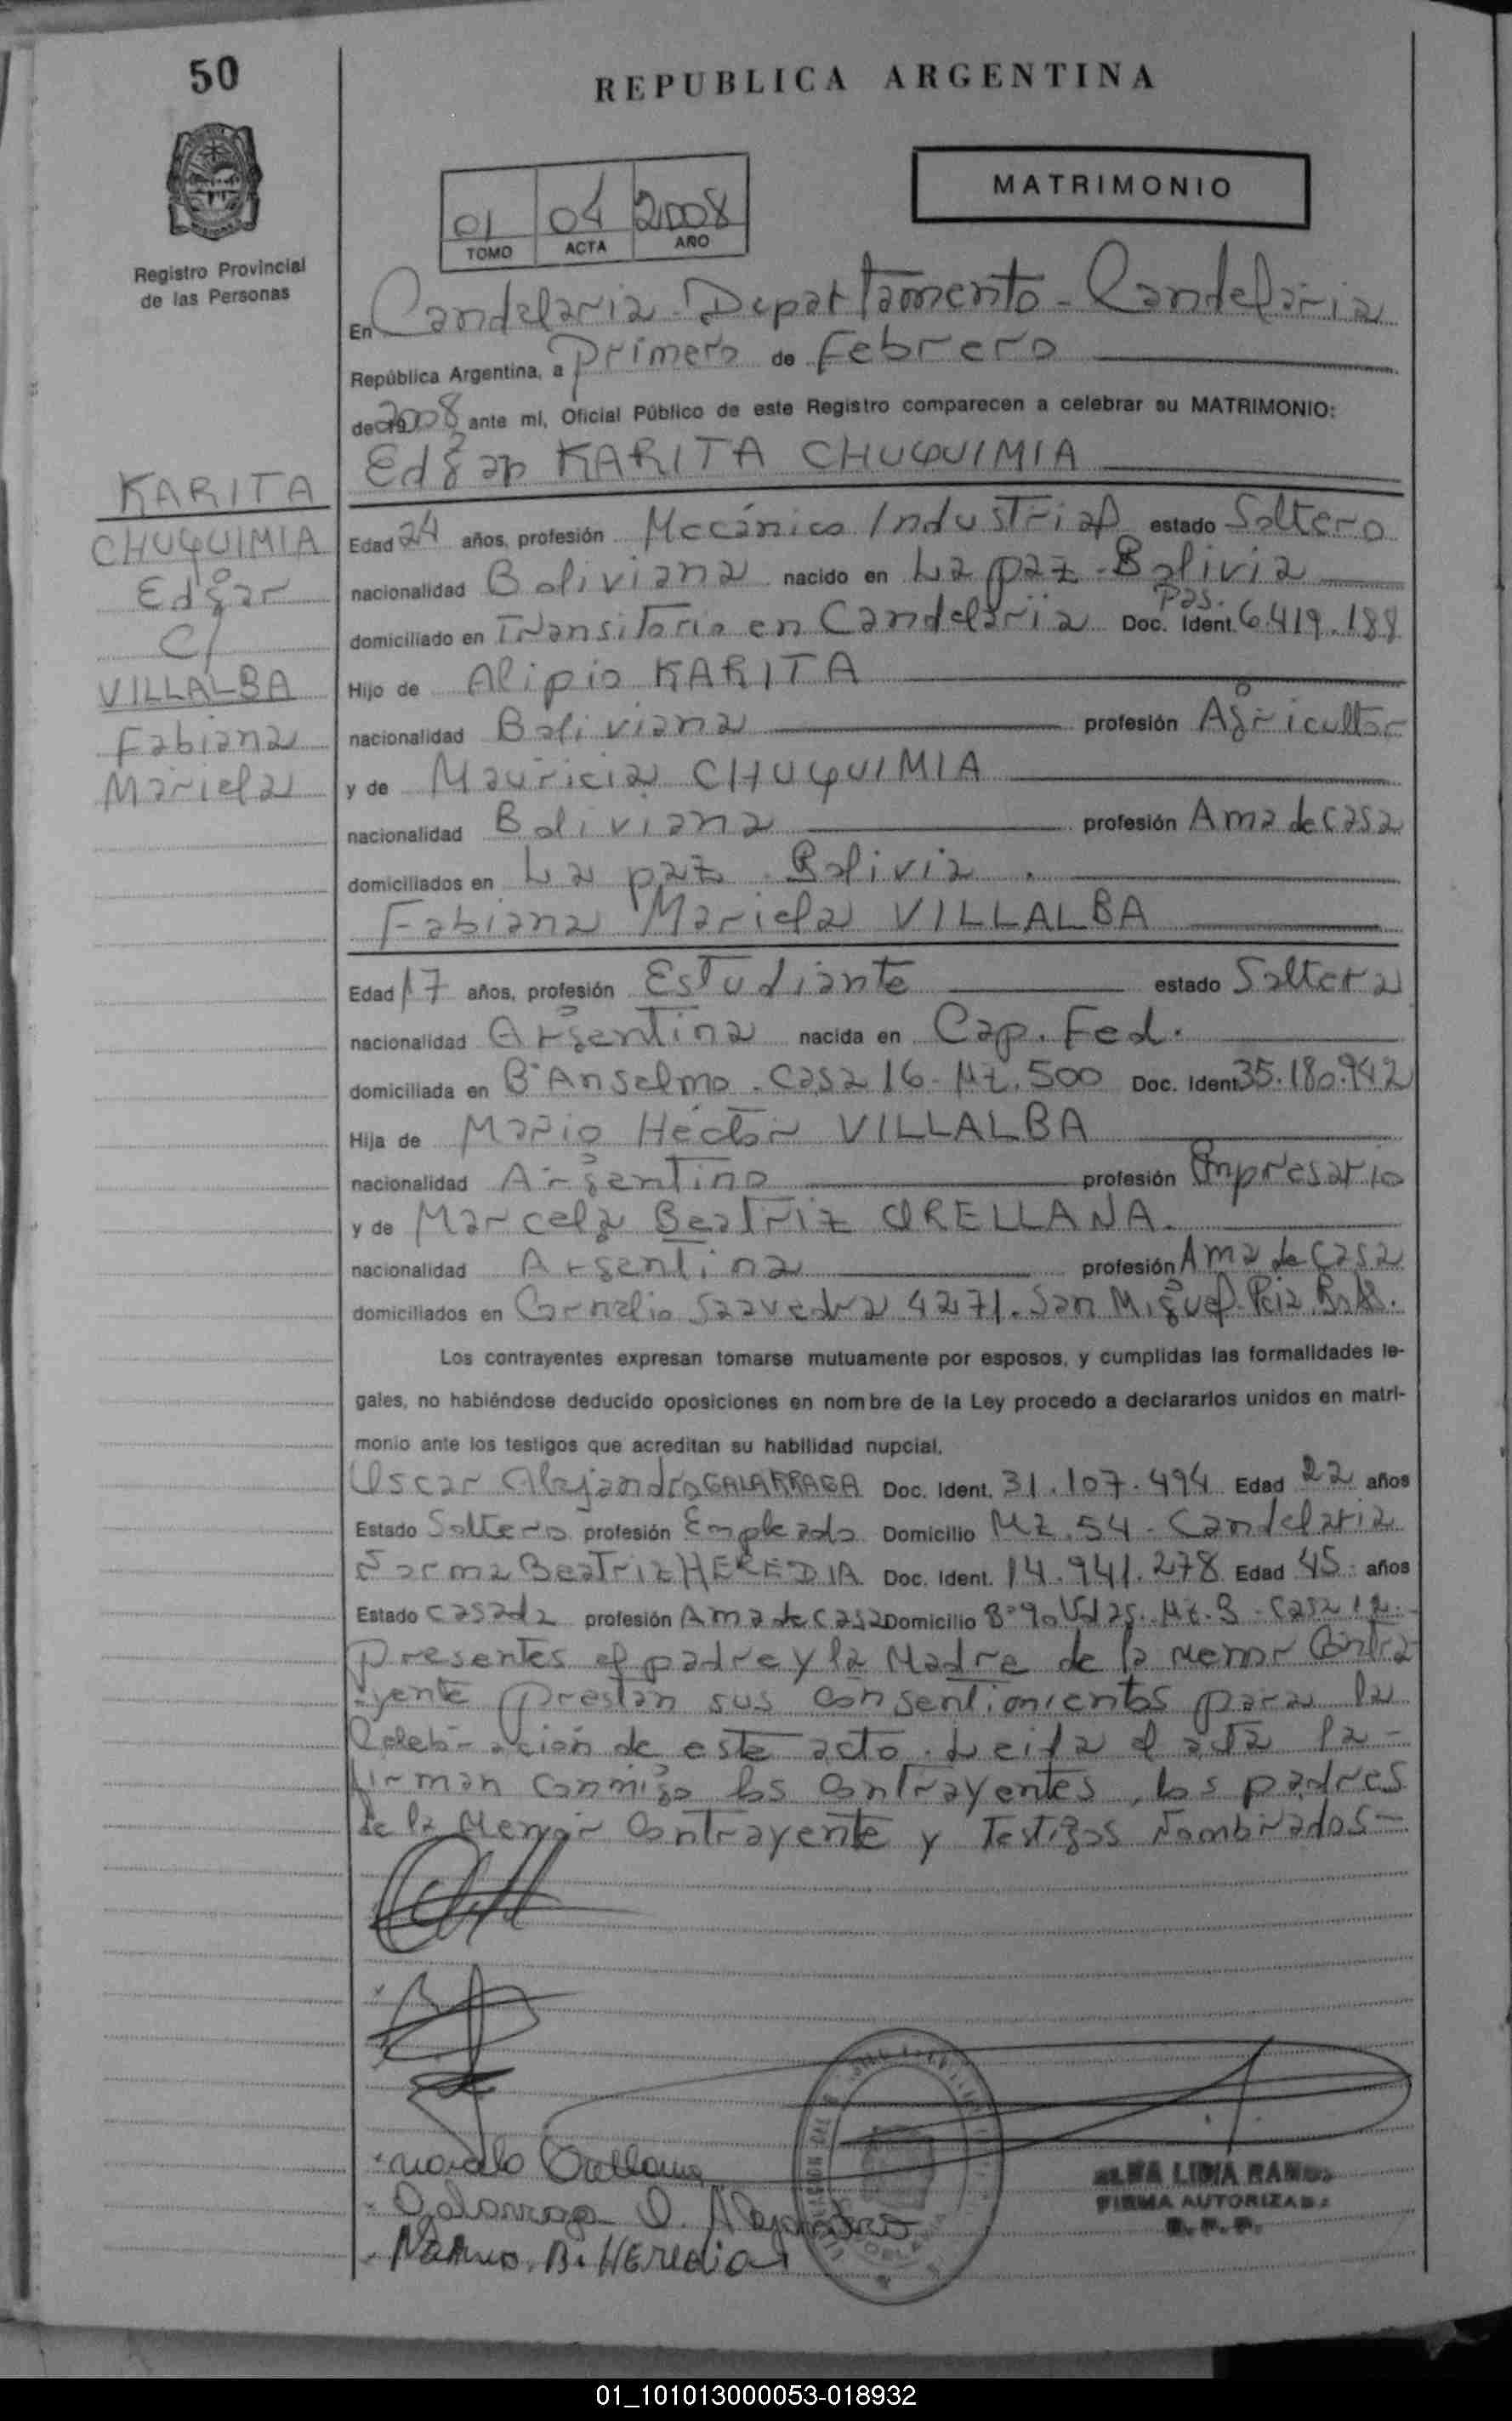 50
REPUBLICA ARGENTINA
Registro Provincial
de las Personas
01 04 2008
TOMO ACTA AÑO
MATRIMONIO
En Candelaria - Departamento - Candelaria
República Argentina, a primero de Febrero
de 2008 ante mí, Oficial Público de este Registro comparecen a celebrar su MATRIMONIO:
Edgar KARITA CHUQUIMIA
KARITA
CHUQUIMIA
Edgar
C/
VILLALBA
Fabiana
Mariela
Edad 24 años, profesión Mecánico Industrial estado Soltero
nacionalidad Boliviana nacido en La paz - Bolivia
domiciliado en Transitorio en Candelaria Doc. Ident. Pas. 6.419.188
Hijo de Alipio KARITA
nacionalidad Boliviana profesión Agricultor
y de Mauricia CHUQUIMIA
nacionalidad Boliviana profesión Ama de casa
domiciliados en La paz Bolivia.
Fabiana Mariela VILLALBA
Edad 17 años, profesión Estudiante estado Soltera
nacionalidad Argentina nacida en Cap. Fed.
domiciliada en B° Anselmo - Casa 16 - Mz. 500 Doc. Ident. 35.180.942
Hija de Mario Héctor VILLALBA
nacionalidad Argentino profesión Empresario
y de Marcela Beatriz ORELLANA.
nacionalidad Argentina profesión Ama de casa
domiciliados en Cornelio Saavedra 4271. San Miguel. Pcia. Bs. As.
Los contrayentes expresan tomarse mutuamente por esposos, y cumplidas las formalidades le-
gales, no habiéndose deducido oposiciones en nombre de la Ley procedo a declararlos unidos en matri-
monio ante los testigos que acreditan su habilidad nupcial.
Oscar Alejandro GALARRAGA Doc. Ident. 31.107.494 Edad 22 años
Estado Soltero profesión Empleado Domicilio Mz. 54 - Candelaria
Norma Beatriz HEREDIA Doc. Ident. 14.941.278 Edad 45 años
Estado casada profesión Ama de casa Domicilio B° 90 Vdas. Mz. B - Casa 12.
presentes el padre y la Madre de la menor Contra
yente prestan sus consentimientos para la
Celebración de este acto. Leida el acta la -
firman conmigo los contrayentes, los padres
de la Menor Contrayente y Testigos Nombrados -
Orellana
Galarraga O. Alejandro
Norma. B. HEREDIA
ALBA LIDIA RAMOS
FIRMA AUTORIZADA
R. P. P.
01_101013000053-018932